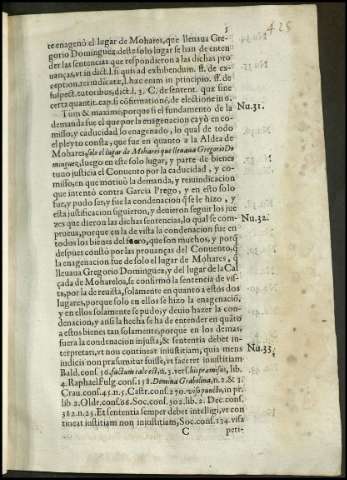 5
425
te enagenò el lugar de Mohares, que lleuaua Gre-
gorio Dominguez deste solo lugar se han de enten
der las sentencias que respondieron a las dichas pro
uanças, vt in dict. l. si quis ad exhibendum. ff. de ex-
ception. rei iudicatæ, l. hæc enim in principio. ff. de
suspect. tutoribus, dict. l. 3. C. de sentent. quæ sine
certa quantit. cap. si côfirmationé, de electione in 6.
Tum & maximè, porque si el fundamento de la
Nu. 31.
demanda fue el que por la enagenacion cayò en co-
misso, y caducidad lo enagenado, lo qual de todo
el pleyto consta, que fue en quanto a la Aldea de
Mohares, solo el lugar de Mohares que lleuaua Gregorio Do
minguez, luego en este solo lugar, y parte de bienes
tuuo justicia el Conuento por la caducidad, y co-
misso, en que motiuò la demanda, y reiuindicacion
que intentò contra Garcia Prego, y en esto solo
fue, y pudo ser, y fue la condenacion q̃ se le hizo, y
esta justificacion siguieron, y deuieron seguir los jue
zes que dieron las dichas sentencias, lo qual se com-
Nu. 32.
prueua, porque en la de vista la condenacion fue en
todos los bienes del foro, que son muchos, y porq̃
despues constò por las prouanças del Conuento, q̃
la enagenacion fue de solo el lugar de Mohares, q̃
lleuaua Gregorio Dominguez, y del lugar de la Cal
çada de Mohareloa, se confirmò la sentencia de vis-
ta, por la de reuista, solamente en quanto a estos dos
lugares, porque solo en ellos se hizo la enagenació,
y en ellos solamente se pudo, y deuio hazer la con-
denacion, y ansi la hecha se ha de entender en quãto
a estos bienes tan solamente, porque en los demas,
fuera la condenacion injusta, & sententia debet in-
terpretari, vt non contineat iniustitiam, quia mens
Nu. 33.
iudicis non præsumitur fuisse, vt faceret iniustitiam
Bald. cons. 36. factum tale est, n. 3. vers. his præmissis, lib.
4. Raphael Fulg. cons. 158. Domina Grabolina, n. 2. & 3.
Crau. cons. 45. n. 5. Castr. cons. 270. viso puncto, in pr.
lib. 2. Oldr. cons. 66. Soc. cons. 302. lib. 2. Dec. cons.
382. n. 25. Et sententia semper debet intelligi, vt con
tineat iustitiam non iniustitiam, Soc. cons. 134. visa
C peti-